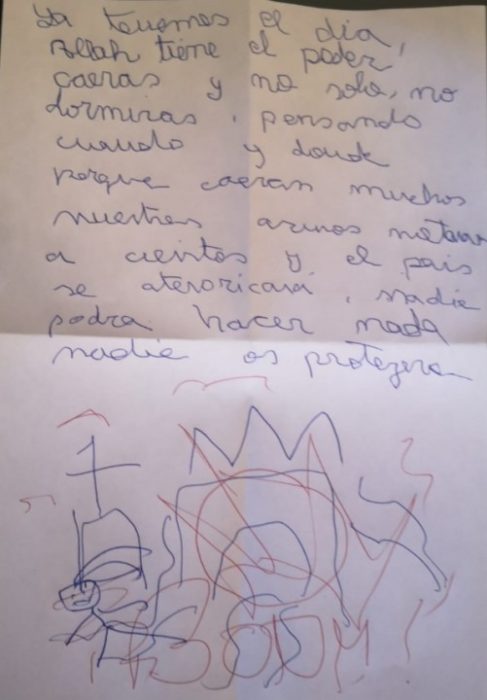 Ya tenemos el dia,
Allah tiene el poder
caeras y no solo, no
dormiras, pensando
cuando y donde
porque caeran muchos
nuestras armas mataran
a cientos y el pais
se aterorizara, nadie
podra hacer nada
nadie os protegera
BOOM!